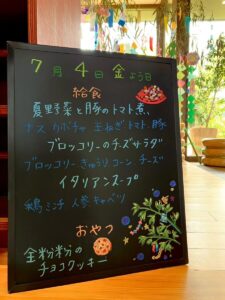 7月4日 金よう日
給食
夏野菜と豚のトマト煮、
ナス カボチャ 玉ねぎ トマト 豚
ブロッコリーのチーズサラダ
ブロッコリー きゅうり コーン チーズ
イタリアンスープ
鶏ミンチ 人参 キャベツ
おやつ
全粒粉の
チョコクッキー